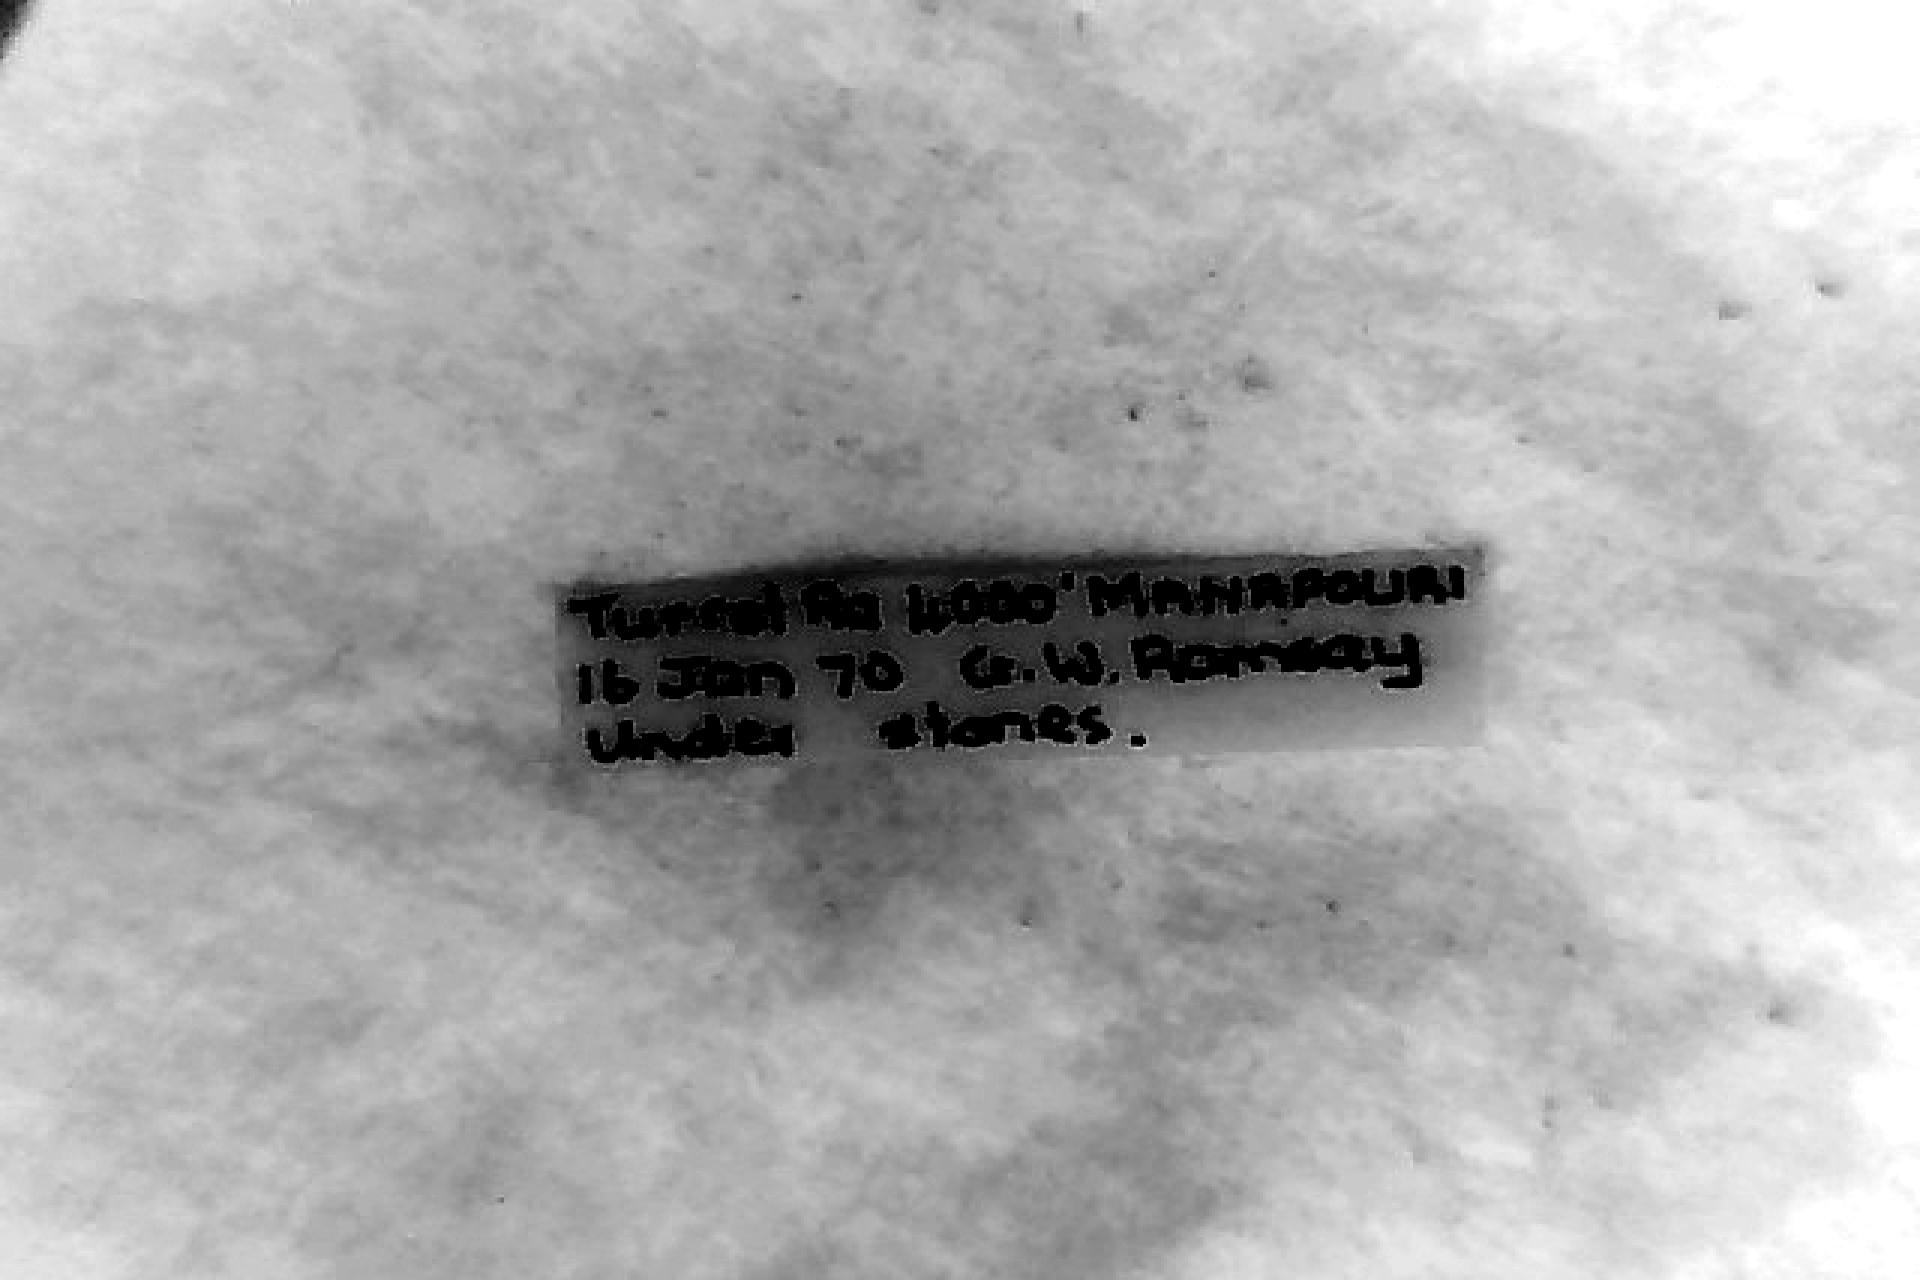 Tunnel Ra 4000' MANAPOURI
16 Jan 70 G.W. Ramsay
Under stones.